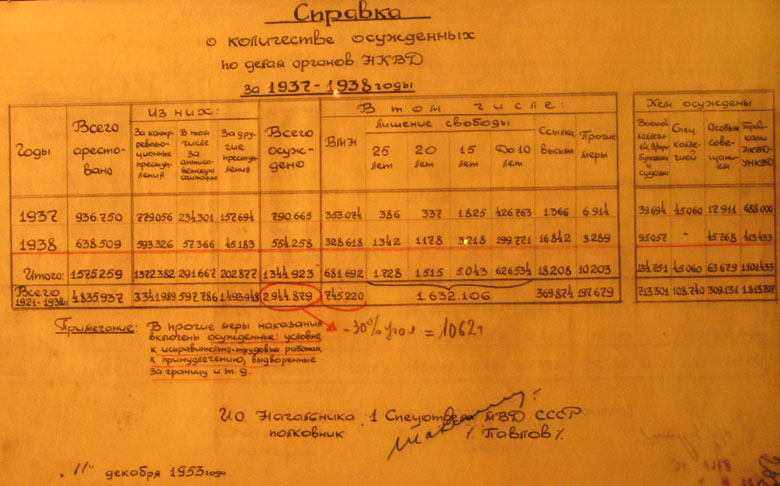 Справка
о количестве осужденных
по делам органов НКВД
за 1937-1938 годы
Годы Всего арестовано Из них: Всего осуждено В том числе: Кем осуждены
За контрреволюционные преступления В том числе за антисоветскую агитацию За другие преступления ВМН лишение свободы Ссылка высылка Прочие меры Спец. коллегией Особым совещанием Тройками НКВД-УНКВД
25 лет 20 лет 15 лет До 10 лет
1937 936.750 779.056 234.301 157.694 790.665 353.074 386 337 1.825 426.763 1366 6.914 39.694 45.060 17.911 688.000
1938 638.509 593.326 57.366 45.183 554.258 328.618 1342 1178 3218 199.771 16.842 3.289 95.057 - 45.768 413.433
Итого: 1.575.259 1.372.382 291.667 202.877 1.344.923 681.692 1.728 1.515 5.043 626.534 18.208 10.203 134.751 45.060 63.679 1.101.433
Всего 1921-1938гг 4.835.937 3.341.989 1.493.948 2.944.879 745.220 1.632.106 369.874 197.679 713.301 108.740 309.131
Примечание: В прочие меры наказания
включены осужденные: условно
к исправительно-трудовым работам
к принудлечению, выдворенные
за границу и т. д.
-30% угол = 1062т
ИО Начальника 1 Спецотдела МВД СССР
полковник /Павлов/
"11" декабря 1953 года